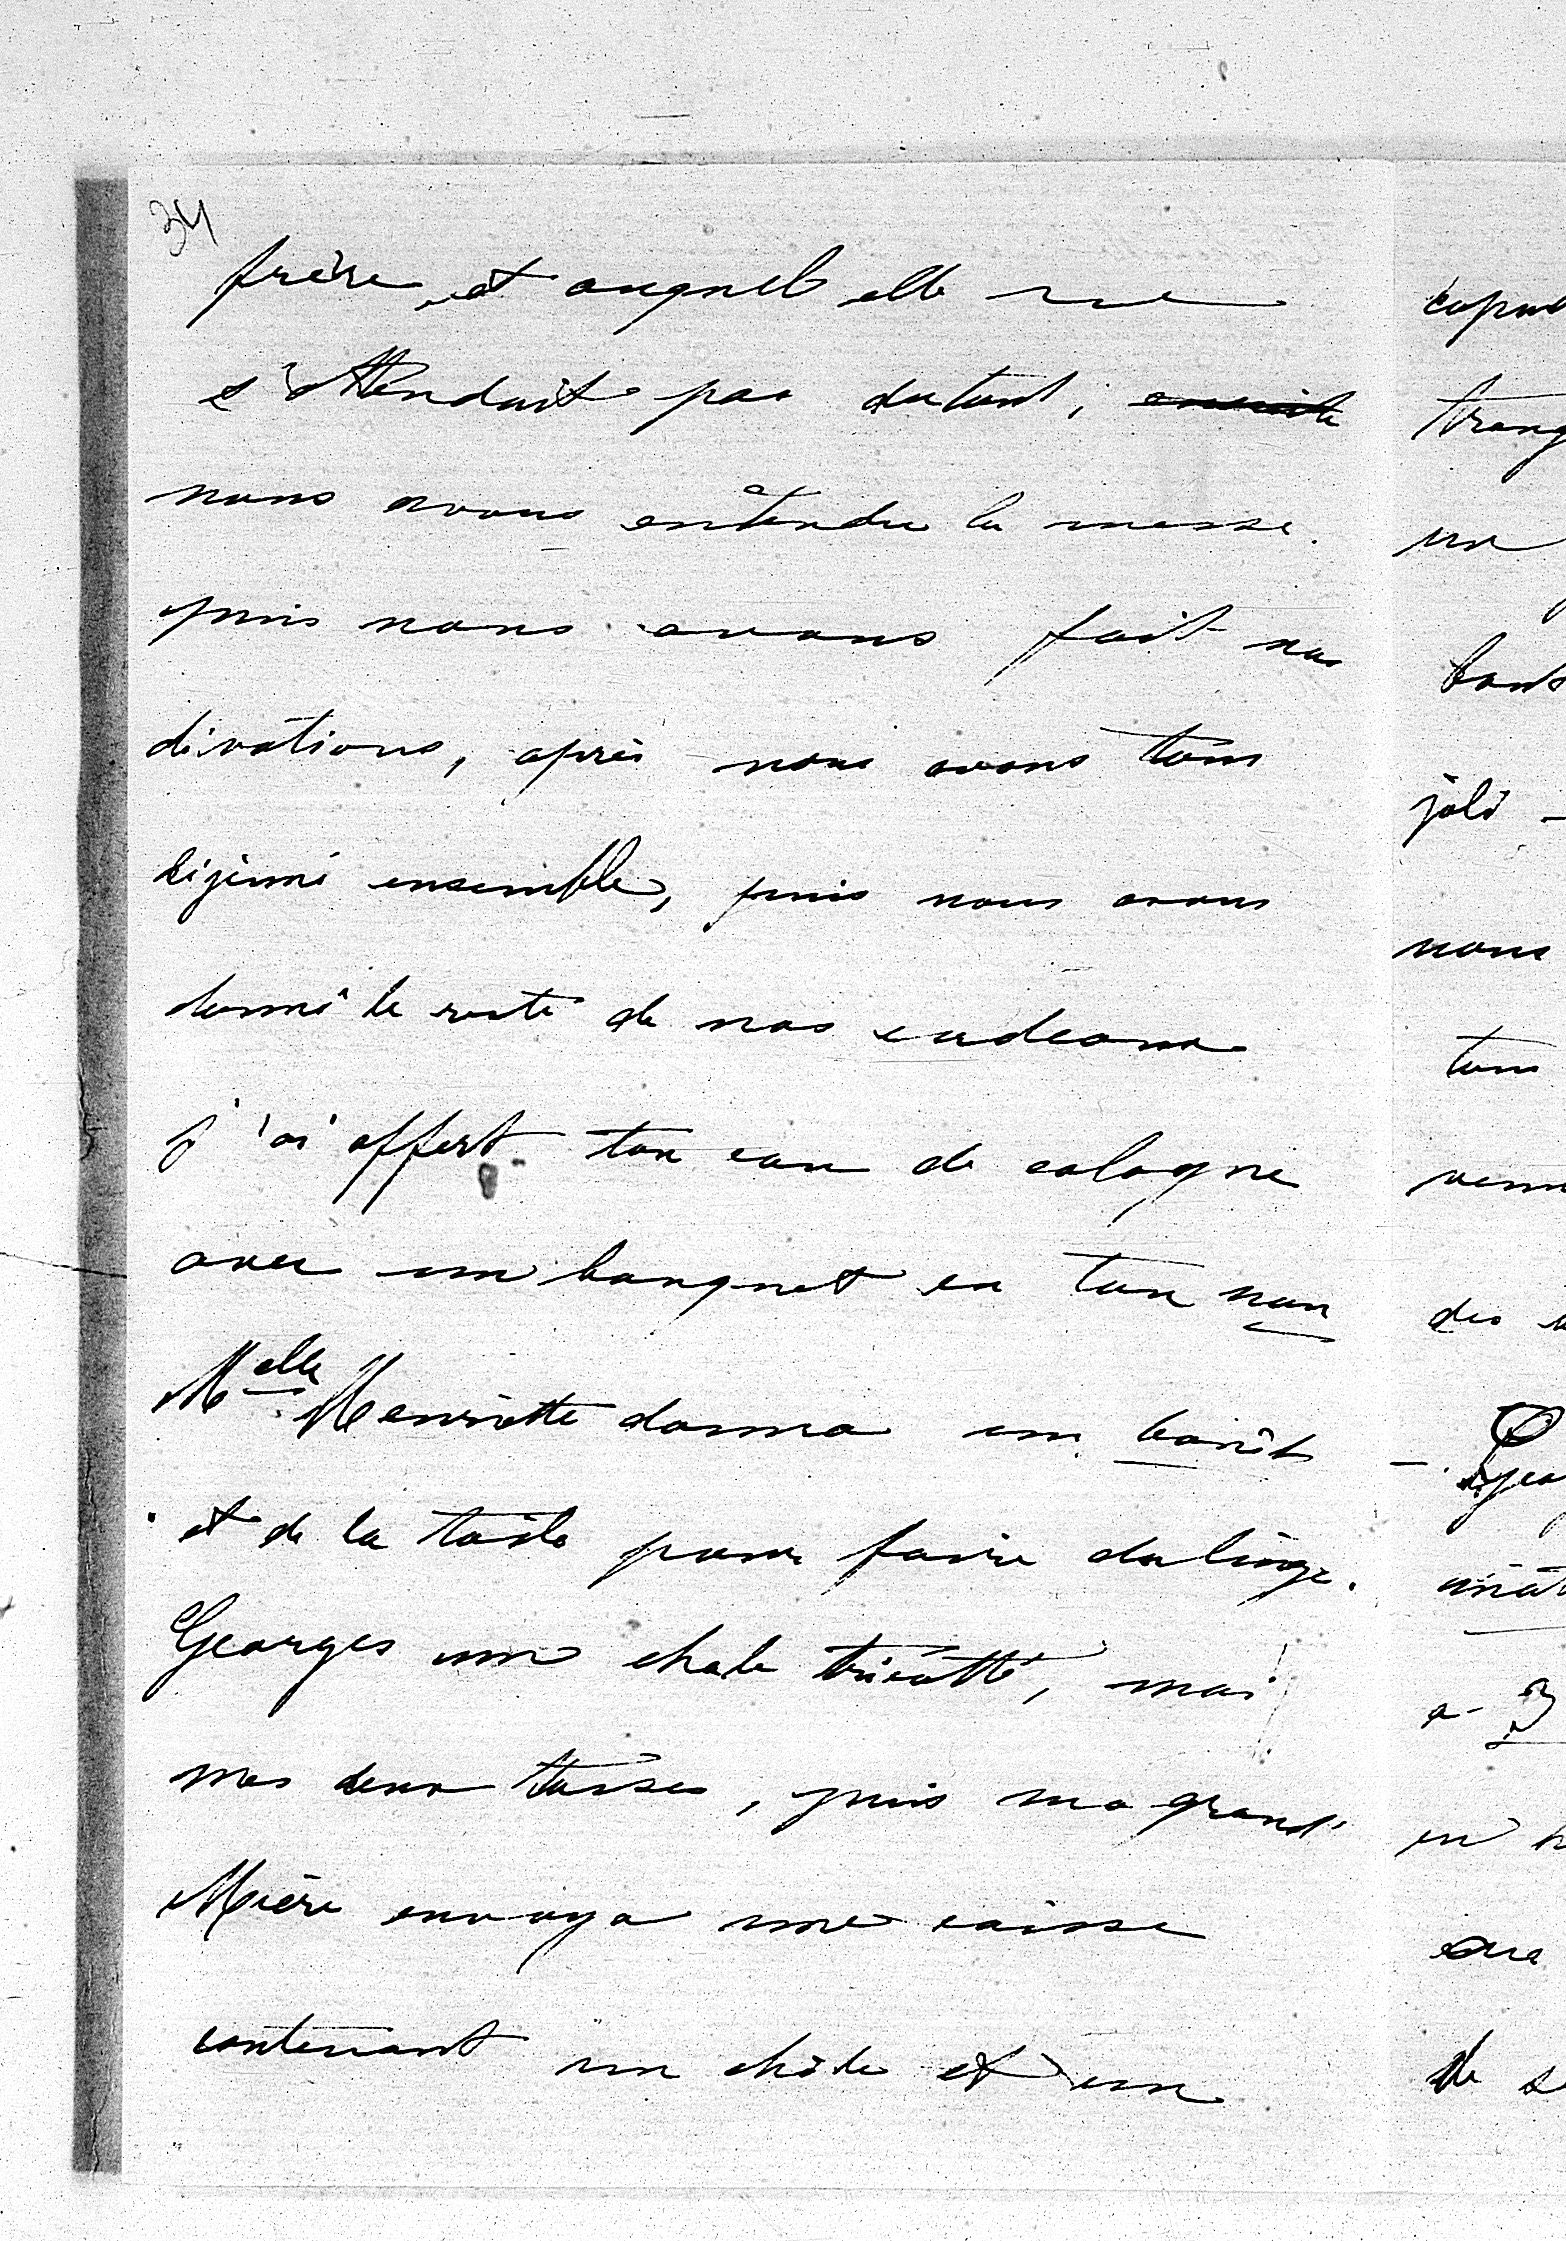 34
frère, et auquel elle ne
s'attendait pas du tout, ensuite
nous avons entendu la messe.
puis nous avons fait nos
dévotions, après nous avons tous
déjeuné ensemble, puis nous avons
donné le reste de nos cadeaux
j'ai offert ton eau de cologne
avec un bouquet en ton nom
Melle Henriette donna un
et de la toile pour faire du linge.
Georges une chale tricotté, moi
mes deux tasses, puis ma grand'
Mère envoya une caisse
contenant un châle et un
joli
nous
tous
des
a 3
en
de